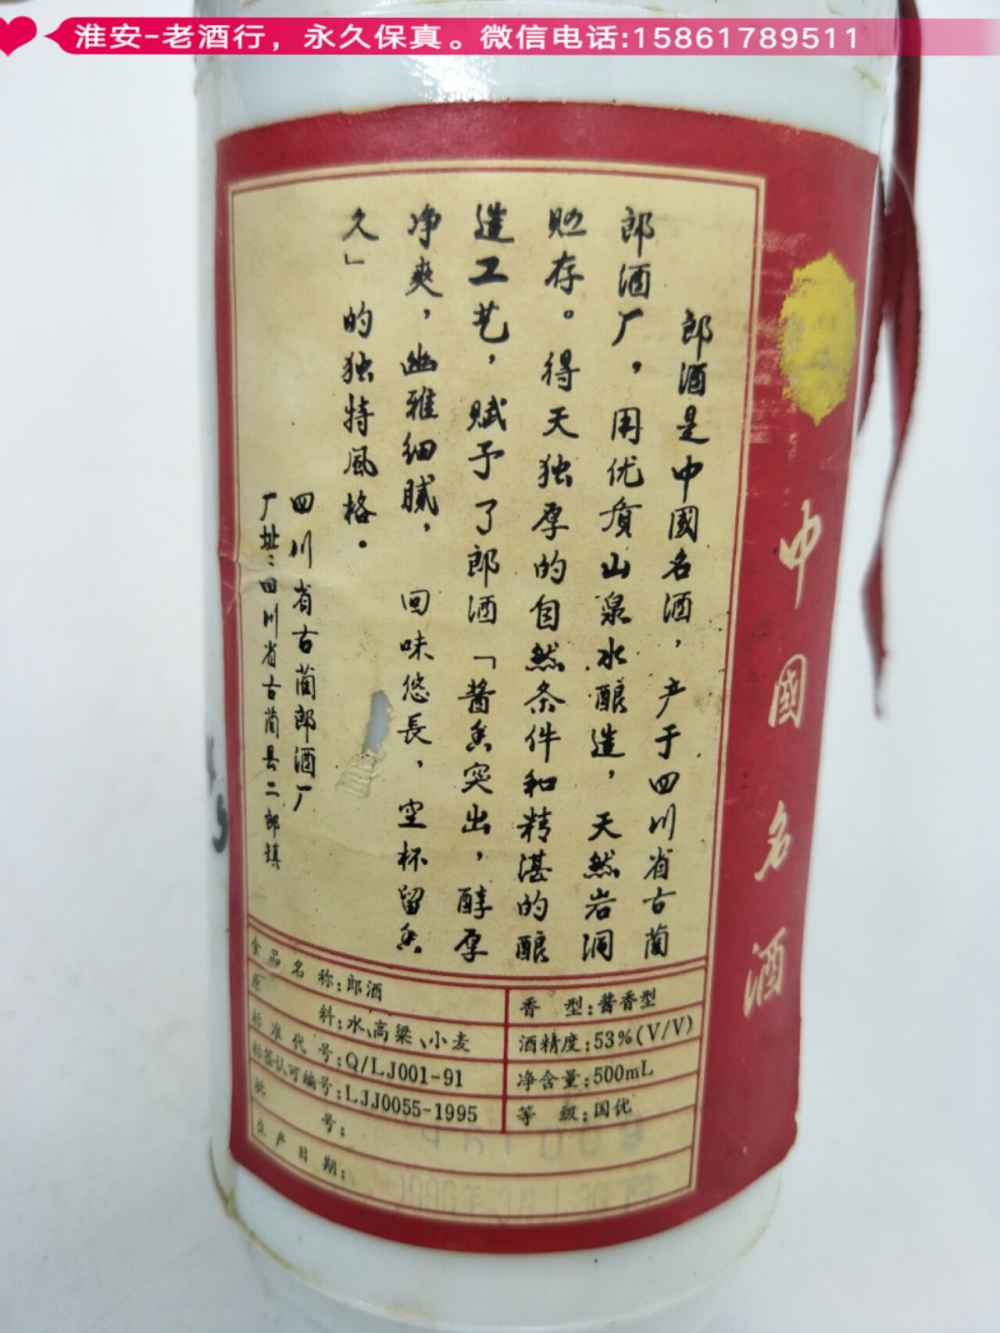 淮安-老酒行，永久保真。微信电话:15861789511
郎酒是中國名酒，产于四川省古蔺
郎酒厂，用优质山泉水酿造，天然岩洞
贮存。得天独厚的自然条件和精湛的酿
造工艺，赋予了郎酒「酱香突出，醇厚
净爽，幽雅细腻，回味悠長，空杯留香
久」的独特风格。
四川省古蔺郎酒厂
厂址：四川省古蔺县二郎镇
中國名酒
食品名称:郎酒
原料:水、高粱、小麦
标准代号:Q/LJ001-91
标签认可编号:LJJ0055-1995
批号:
生产日期:
香型:酱香型
酒精度:53%(V/V)
净含量:500mL
等级:国优